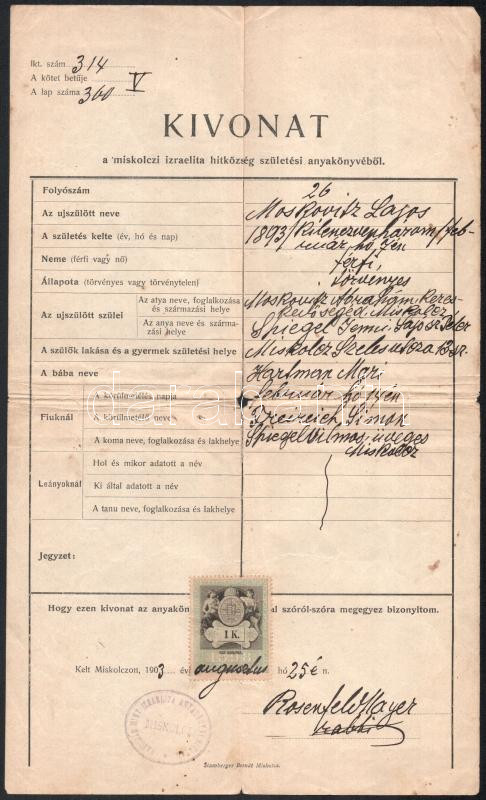 Ikt. szám 314
A kötet betűje V
A lap száma 360
KIVONAT
a miskolczi izraelita hitközség születési anyakönyvéből.
Folyószám 26
Az ujszülött neve Moskovitz Lajos
A születés kelte (év, hó és nap) 1893/kilenczvenhárom/feb-
ruár hó én
Neme (férfi vagy nő) férfi,
Állapota (törvényes vagy törvénytelen) törvényes
Az ujszülött szülei
Az atya neve, foglalkozása és származási helye Moskovitz Ábrahám, keres-
kedősegéd, Miskolcz
Az anya neve és származási helye Spiegel
A szülők lakása és a gyermek születési helye Miskolcz Szeles utcza 13 sz.
A bába neve Hartman Mari
Fiuknál
A körülmetélés napja február hó én
A körülmetélő neve Simon
A koma neve, foglalkozása és lakhelye Spiegel Vilmos, üveges
Miskolcz
Leányoknál
Hol és mikor adatott a név
Ki által adatott a név
A tanu neve, foglalkozása és lakhelye
Jegyzet:
Hogy ezen kivonat az anyakön al szóról-szóra megegyez bizonyitom.
1 K.
Kelt Miskolczon, 1903 év augusztus hó 25 én.
Rosenfeld Mayer
rabbi
MISKOLCZ
Stamberger Bernát Miskolcz.